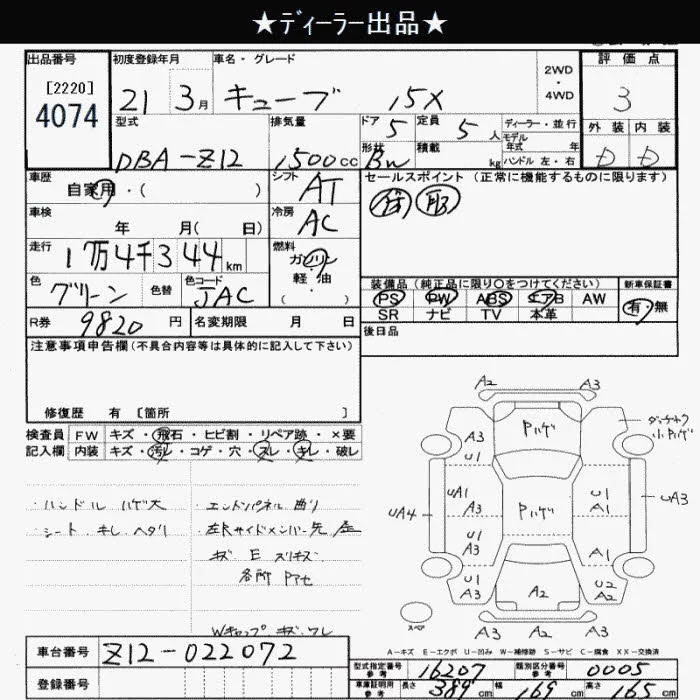 ★ディーラー出品★
出品番号 初度登録年月 車名・グレード 2WD・4WD 評価点
[2220]
4074
21 3月 キューブ 15X 3
型式 排気量 ドア 定員 ディーラー・並行 外装 内装
5 5人 モデル年式 年
DBA-Z12 1500cc 形状 積載 kg ハンドル 左・右 D D
Bw
車歴 シフト セールスポイント (正常に機能するものに限ります)
自家用・( ) AT
車検 冷房 保 取
年 月( 日) AC
走行 燃料
1万4千344km ガソリン・軽油・( )
装備品 (純正品に限り○をつけてください) 新車保証書
色 色替 色コード PS PW ABS エアB AW 有・無
グリーン JAC SR ナビ TV 本革
R券 9820円 名変期限 月 日 後日品
注意事項申告欄 (不具合内容等は具体的に記入して下さい)
修復歴 有 [箇所 ]
検査員 FW キズ・飛石・ヒビ割・リペア跡・×要
記入欄 内装 キズ・汚レ・コゲ・穴・スレ・キレ・破レ
・ハンドル ハゲ大 ・エンドパネル 曲り
・シート キレ ヘタリ ・左Rサイドメンバー先
キズ E スリキズ
各所
Wキャップ キズ ワレ
A2 A3
A3 Pハゲ A3 小Pハゲ
U1
UA1 Pハゲ U1 UA3
UA4 A1
U1
A3
A1
U1 U2
A3 A2 A2
スペア A3 A2 A3
A-キズ E-エクボ U-凹み W-補修跡 S-サビ C-腐食 XX-交換済
車台番号 Z12-022072
型式指定番号 参考 16207 類別区分番号 参考 0005
登録番号 車庫証明用 参考 長さ 389cm 幅 169cm 高さ 165cm